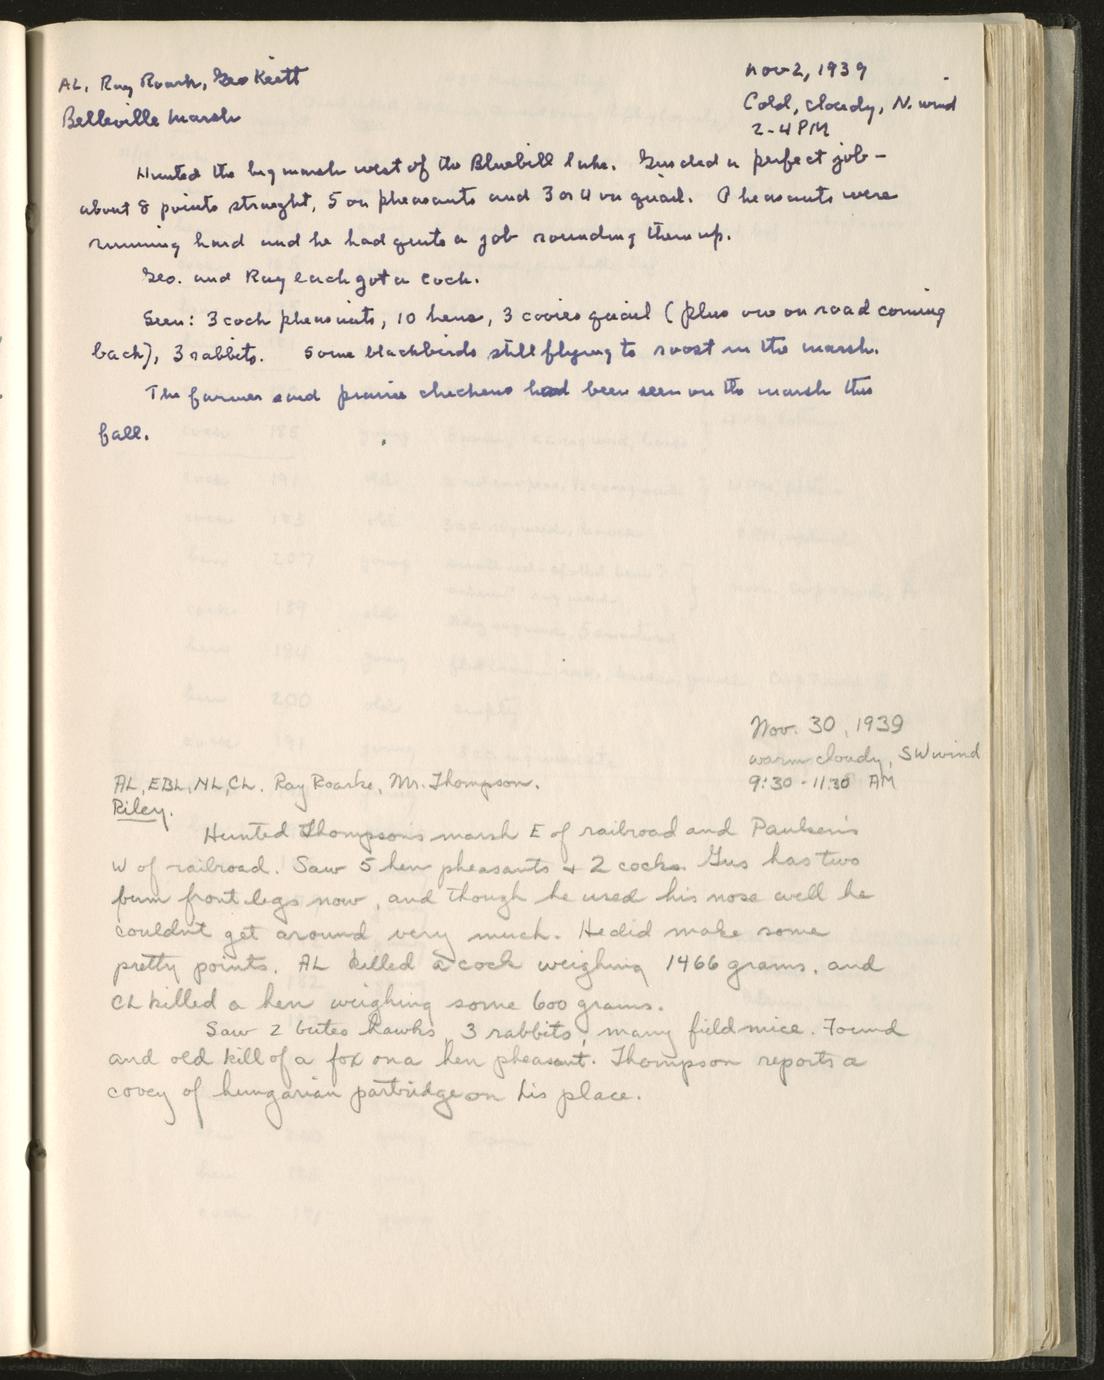 AL, Ray Roark, Geo Keitt
Belleville Marsh
Nov 2, 1939
Cold, cloudy, N. wind
2-4 PM
Hunted the big marsh west of the Bluebill lake. Gus did a perfect job -
about 8 points straight, 5 on pheasants and 3 or 4 on quail. Pheasants were
running hard and he had quite a job rounding them up.
Geo. and Ray each got a cock.
Seen: 3 cock pheasants, 10 hens, 3 covies quail (plus one on road coming
back), 3 rabbits. Some blackbirds still flying to roost in the marsh.
The farmer said prairie chickens had been seen on the marsh this
fall.
Nov. 30, 1939
warm cloudy, SW wind
9:30 - 11:30 AM
AL, EBL, NL, CL. Ray Roarke, Mr. Thompson.
Riley.
Hunted Thompson's marsh E of railroad and Paulsen's
W of railroad. Saw 5 hen pheasants + 2 cocks. Gus has two
bum front legs now, and though he used his nose well he
couldn't get around very much. He did make some
pretty points. AL killed a cock weighing 1466 grams, and
CL killed a hen weighing some 600 grams.
Saw 2 buteo hawks, 3 rabbits, many field mice. Found
and old kill of a fox on a hen pheasant. Thompson reports a
covey of hungarian partridge on his place.